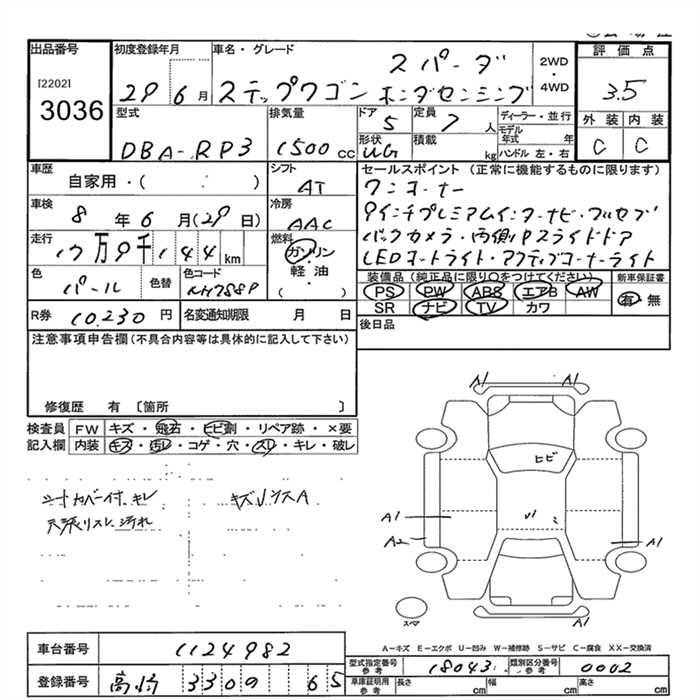 出品番号
[2202]
3036
初度登録年月
29 6月
車名・グレード
スパーダ
ステップワゴン ホンダセンシング
2WD
・
4WD
評価点
3.5
外装 内装
C C
型式
DBA-RP3
排気量
1500 cc
ドア
5
定員
7 人
形状
積載
kg
ディーラー・並行
モデル
年式 年
ハンドル 左・右
車歴
自家用・( )
シフト
AT
セールスポイント (正常に機能するものに限ります)
ワンオーナー
9インチプレミアムインターナビ・フルセグ
バックカメラ・両側Pスライドドア
LEDヘッドライト・アクティブコーナーライト
車検
8年 6月(29日)
冷房
AAC
走行
万9千144 km
燃料
ガソリン
軽油
・
( )
色
パール
色替
色コード
NH788P
装備品 (純正品に限り○をつけてください)
PS PW ABS エアB AW
SR ナビ TV カワ
新車保証書
有 無
R券
10,230 円
名変通知期限 月 日
後日品
注意事項申告欄(不具合内容等は具体的に記入して下さい)
修復歴 有 〔箇所 〕
検査員
記入欄
FW キズ・飛石・ヒビ割・リペア跡・×要
内装 キズ・汚レ・コゲ・穴・スレ・キレ・破レ
シートカバー付 キレ
天張リスレ 汚れ
A1 A1
ヒビ
A1
A2
A1
A1
スペア
A−キズ E−エクボ U−凹み W−補修跡 S−サビ C−腐食 XX−交換済
車台番号
1124982
登録番号
高崎 3309 65
型式指定番号
参考
18043
類別区分番号
参考
0002
車庫証明用
参考
長さ cm
幅 cm
高さ cm